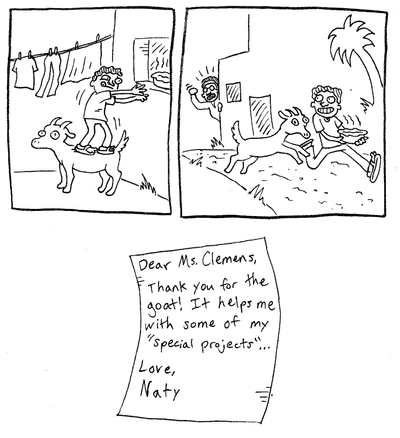 Dear Ms. Clemens,
Thank you for the
goat! It helps me
with some of my
"special projects"...
Love,
Naty